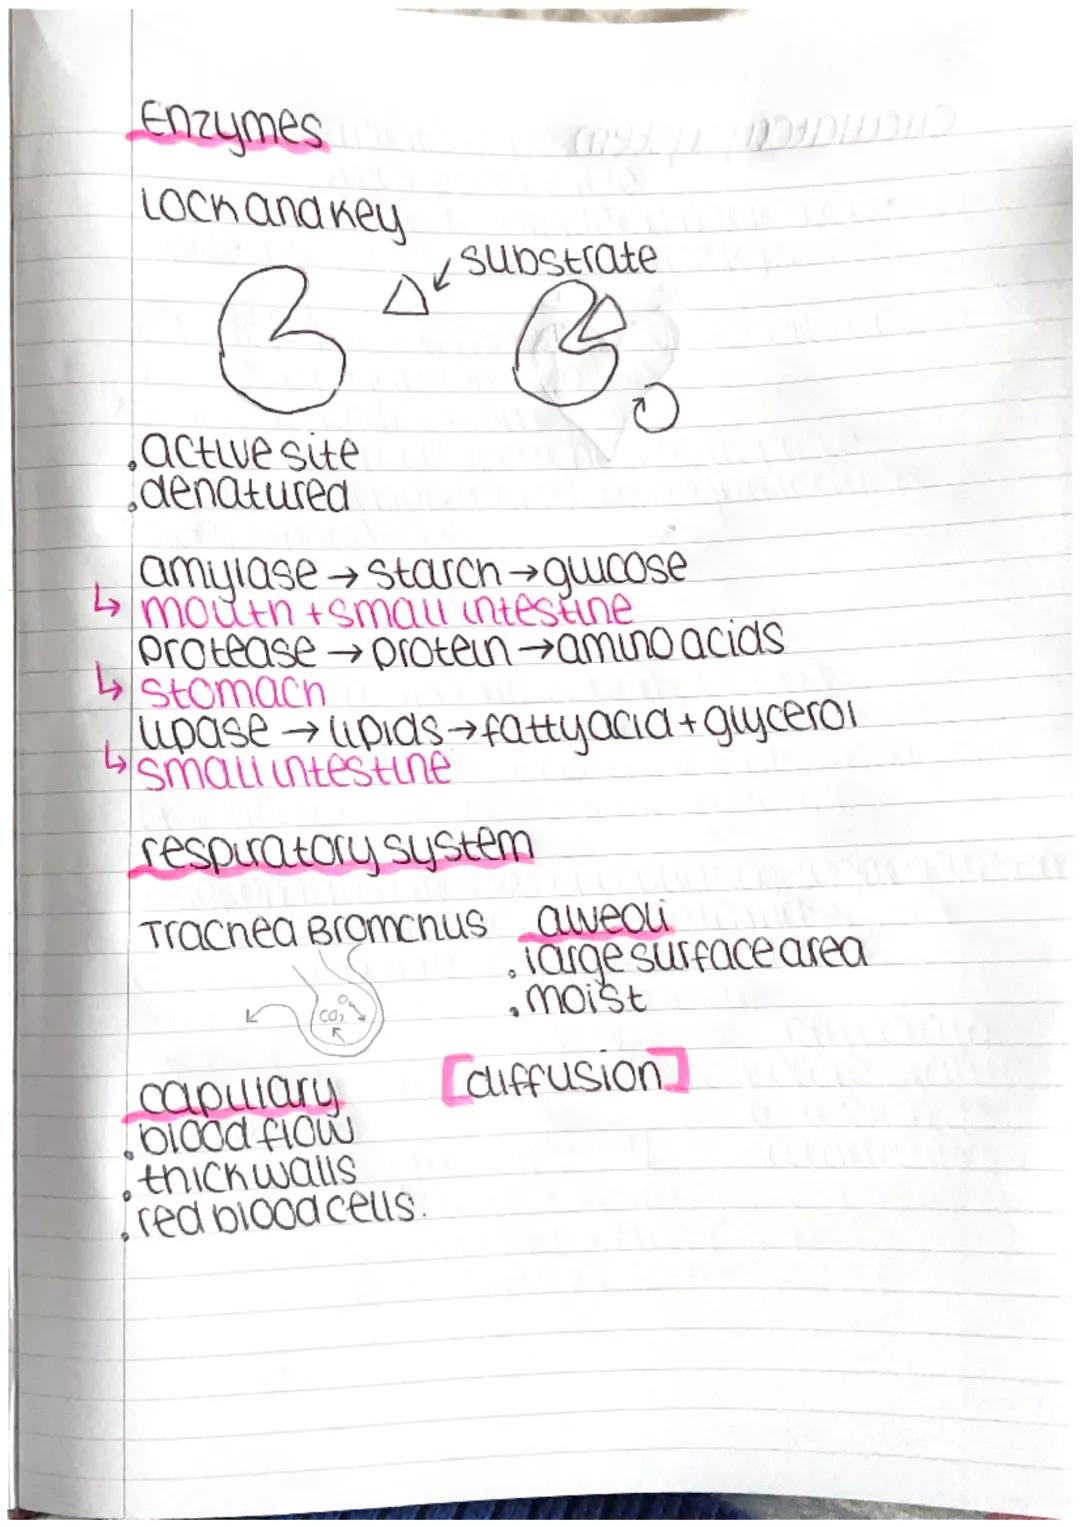 Enzymes
Lock and key
substrate
.active site
.denatured
amylase → starch → glucose
↳ mouth + small intestine
protease → protein → amino acids
↳ stomach
lipase → lipids → fatty acid + glycerol
↳ small intestine
respiratory system
Trachea Bromchus
alveoli
.large surface area
.moist
CO₂
[diffusion]
capillary
.blood flow
.thick walls
.red blood cells.